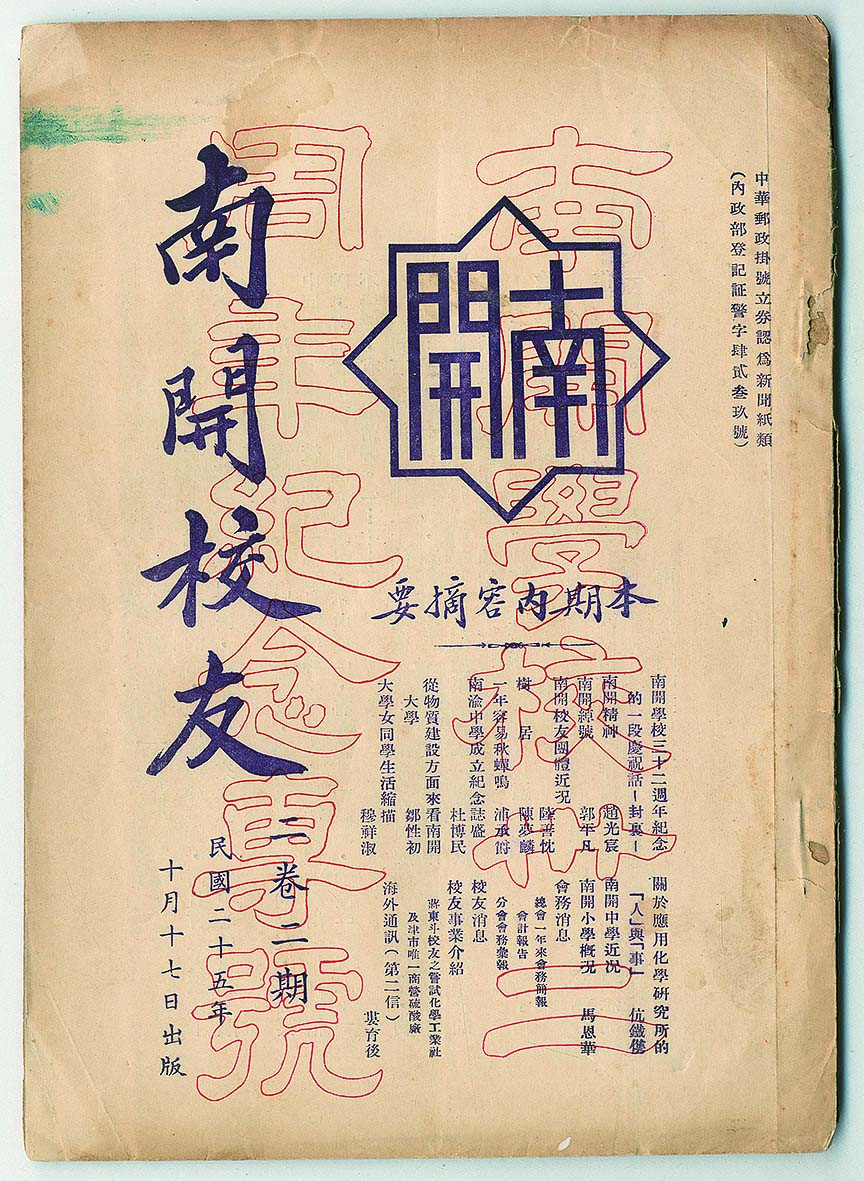 中華郵政掛號立券認爲新聞紙類
（內政部登記証警字肆貳叁玖號）
南開
南開學校卅二
周年紀念專號
本期內容摘要
南開學校三十二週年紀念
的一段慶祝話—封裏—
南開精神 趙光宸
南開綽號 郭平凡
南開校友團體近況 陸善忱
樹居 陳彥麟
一年容易秋蟬鳴 浦承爵
南渝中學成立紀念誌盛
杜博民
從物質建設方面來看南開
大學 鄒性初
大學女同學生活縮描
穆祥淑
關於應用化學研究所的
「人」與「事」 伉鐵儁
南開中學近況
南開小學概況 馬恩華
會務消息
總會一年來會務簡報
會計報告
分會會務彙報
校友消息
校友事業介紹
蔣東斗校友之嘗試化學工業社
及津市唯一商營硫酸廠
海外通訊（第二信）
婁育後
南開校友
二卷二期
民國二十五年
十月十七日出版